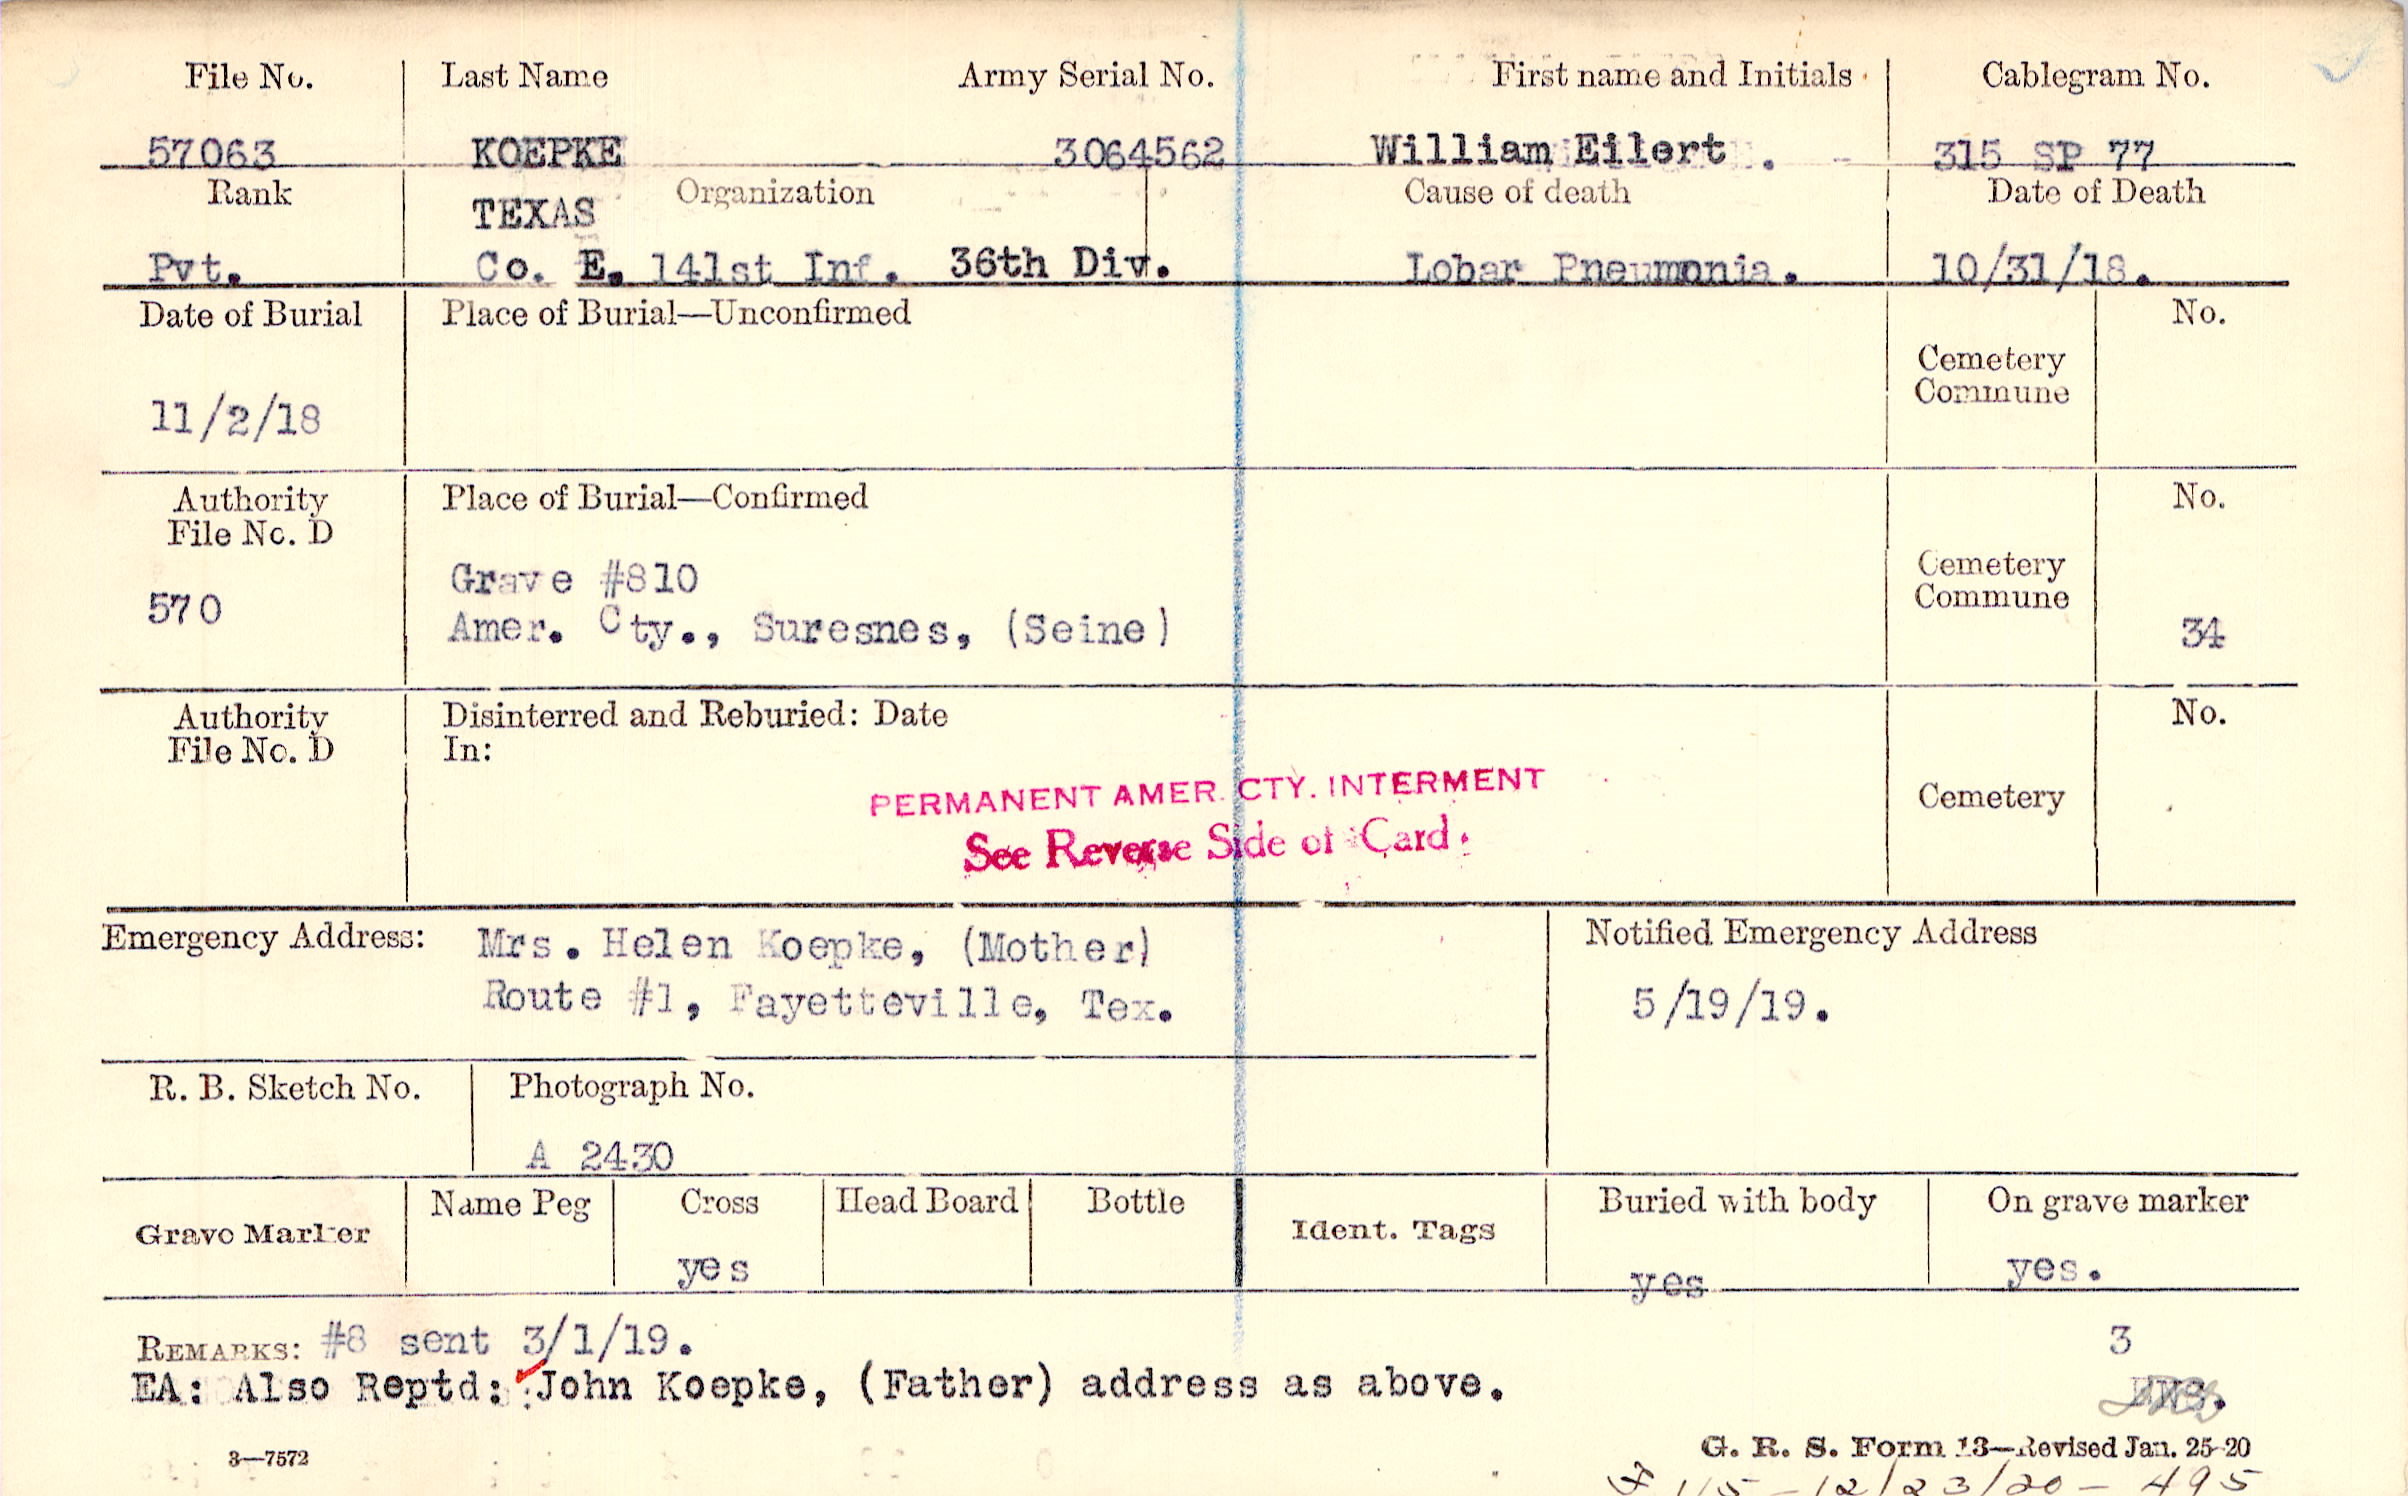 File No. Last Name Army Serial No. First name and Initials Cablegram No.
57063 KOEPKE 3064562 William Eilert . 315 SP 77
Rank TEXAS Organization Cause of death Date of Death
Pvt. Co. E. 141st Inf. 36th Div. Lobar Pneumonia. 10/31/18.
Date of Burial Place of Burial—Unconfirmed No.
Cemetery
Commune
11/2/18
Authority Place of Burial—Confirmed No.
File No. D
Grave #810 Cemetery
Commune
570 Amer. Cty., Suresnes, (Seine) 34
Authority Disinterred and Reburied: Date No.
File No. D In:
PERMANENT AMER. CTY. INTERMENT Cemetery
See Reverse Side of Card.
Emergency Address: Mrs. Helen Koepke, (Mother) Notified Emergency Address
Route #1, Fayetteville, Tex. 5/19/19.
R. B. Sketch No. Photograph No.
A 2430
Grave Marker Name Peg Cross Head Board Bottle Ident. Tags Buried with body On grave marker
yes yes yes.
REMARKS: #8 sent 3/1/19. 3
EA: Also Reptd: John Koepke, (Father) address as above.
3—7572 G. R. S. Form 13—Revised Jan. 25-20
115 - 12/23/20 - 495